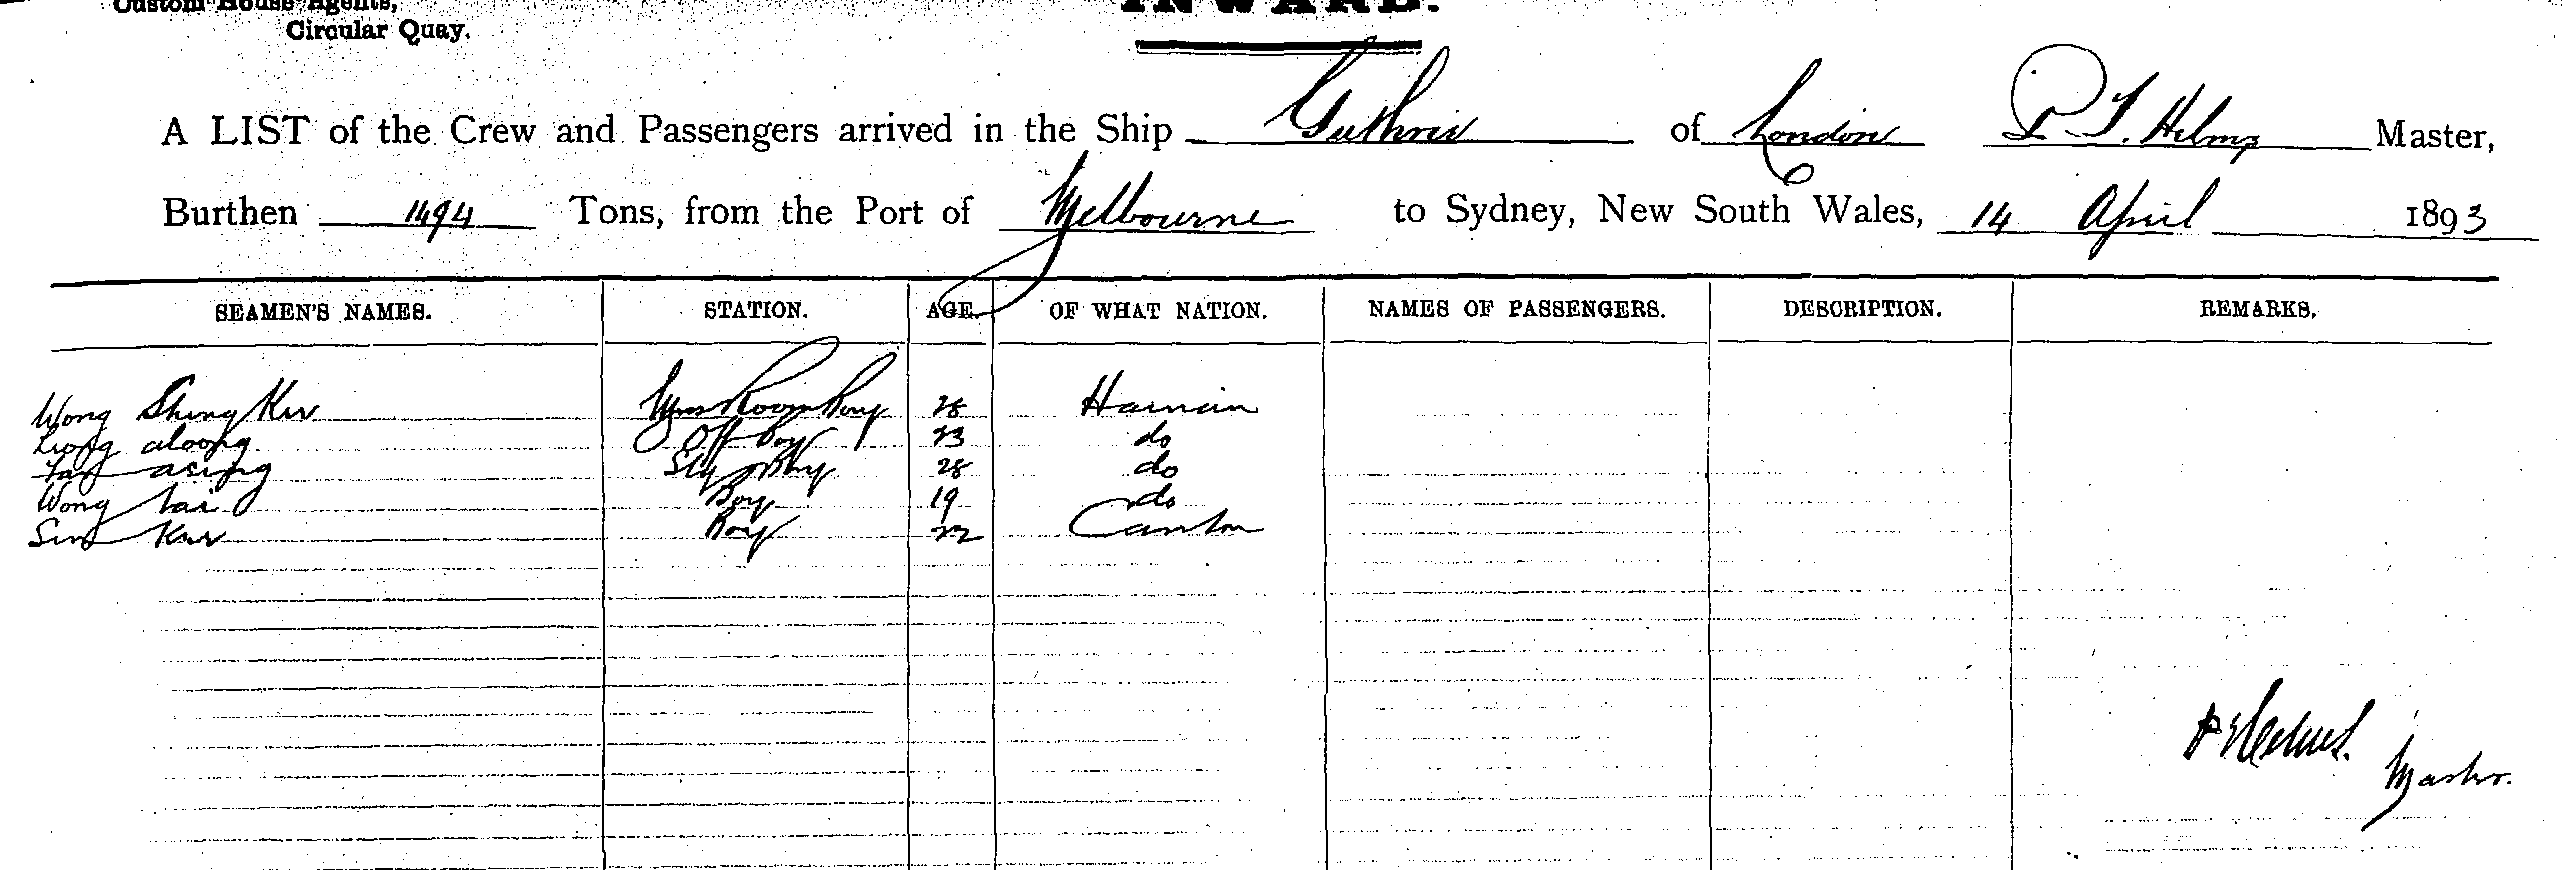 Custom House Agents,
Circular Quay.
INWARD.
A LIST of the Crew and Passengers arrived in the Ship Guthrie of London P. T. Helms Master,
Burthen 1494 Tons, from the Port of Melbourne to Sydney, New South Wales, 14 April 1893
SEAMEN'S NAMES. STATION. AGE. OF WHAT NATION. NAMES OF PASSENGERS. DESCRIPTION. REMARKS.
Wong Shing Kee Mess Room Boy 28 Hainan
Liong aloong Off Boy 23 do
asing 28 do
Wong tai Boy 19 do
Sing Kee Boy 22 Canton
Helms.
Master.